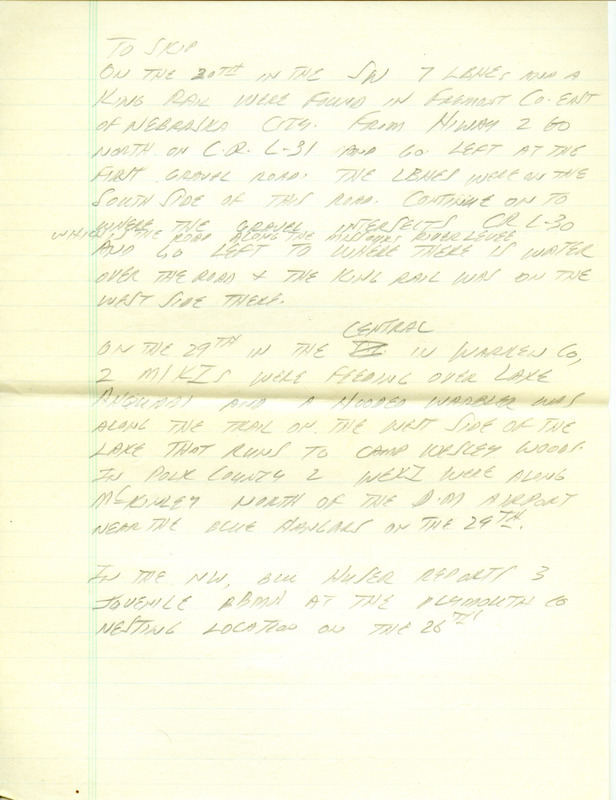 TO SKIP
ON THE 20TH IN THE SW 7 LBHES AND A
KING RAIL WERE FOUND IN FREMONT CO. EAST
OF NEBRASKA CITY. FROM HIWAY 2 GO
NORTH ON C.R. L-31 AND GO LEFT AT THE
FIRST GRAVEL ROAD. THE LBHES WERE ON THE
SOUTH SIDE OF THIS ROAD. CONTINUE ON TO
WHERE THE GRAVEL INTERSECTS CR L-30
WHICH IS THE ROAD ALONG THE MISSOURI RIVER LEVEE
AND GO LEFT TO WHERE THERE IS WATER
OVER THE ROAD + THE KING RAIL WAS ON THE
WEST SIDE THERE.
CENTRAL
ON THE 29TH IN THE IN WARREN CO,
2 MIKIS WERE FEEDING OVER LAKE
AHQUABI AND A HOODED WARBLER WAS
ALONG THE TRAIL ON THE WEST SIDE OF THE
LAKE THAT RUNS TO CAMP WESLEY WOODS.
IN POLK COUNTY 2 WEKI WERE ALONG
MCKINLEY NORTH OF THE D.M AIRPORT
NEAR THE BLUE HANGARS ON THE 29TH.
IN THE NW, BILL HUSER REPORTS 3
JUVENILE BBMA AT THE PLYMOUTH CO
NESTING LOCATION ON THE 26TH